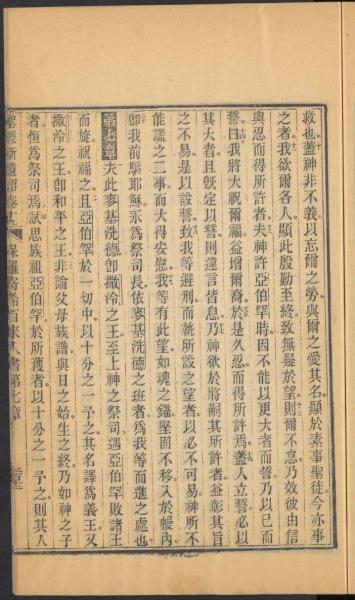 救也蓋神非不義以忘爾之勞與爾之愛其名顯於素事聖徒今亦事
之者我欲爾各人顯此殷勤至終致無疑於望則爾不怠乃效彼由信
與忍而得所許者夫神許亞伯罕時因不能以更大者而誓乃以己而
誓曰我將大祝爾福益增爾裔於是久忍而得所許焉蓋人立誓必以
其大者且旣定以誓則違言皆息乃神欲於將嗣其所許者益彰其旨
之不易是以設誓致我等避刑而執所設之望者以必不可易神所不
能謊之二事而大得安慰我等有此望如魂之錨堅固不移入於幔內
卽我前驅耶穌永爲祭司長依麥基洗德之班者爲我等而進之處也
第七章夫此麥基洗德卽撒冷之王至上神之祭司遇亞伯罕敗諸王
而旋祝福之且亞伯罕於一切中以十分之一予之其名譯爲義王又
撒冷之王卽和平之王非論父母族譜與日之始生之終乃如神之子
者恒爲祭司焉試思族祖亞伯罕於所獲者以十分之一予之則其人
聖經新遺詔卷
保羅寄希百來人書第七章